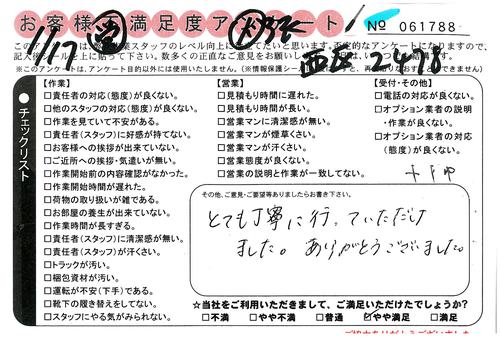 お客様満足度アンケート
№ 061788
1/17
このア
スタッフのレベル向上に
たいと思います。否定的なアンケートになりますので、
このアンケートは、アンケート目的以外には使用いたしません。
チェックリスト
【作業】
□責任者の対応(態度)が良くない。
□他のスタッフの対応(態度)が良くない。
□作業を見ていて不安がある。
□責任者(スタッフ)に好感が持てない。
□お客様への挨拶が出来ていない。
□ご近所への挨拶・気遣いが無い。
□作業開始前の内容確認がなかった。
□作業開始時間が遅れた。
□荷物の取り扱いが雑である。
□お部屋の養生が出来ていない。
□作業時間が長すぎる。
□責任者(スタッフ)に清潔感が無い。
□責任者(スタッフ)が汗くさい。
□トラックが汚い。
□梱包資材が汚い。
□運転が不安(下手)である。
□靴下の履き替えをしてない。
□スタッフにやる気がみられない。
【営業】
□見積もり時間に遅れた。
□見積もり時間が長い。
□営業マンに清潔感が無い。
□営業マンが煙草くさい。
□営業マンが汗くさい。
□営業態度が良くない。
□営業の説明と作業が一致してない。
【受付・その他】
□電話の対応が良くない。
□オプション業者の説明
・作業が良くない。
□オプション業者の対応
(態度)が良くない。
その他、ご意見・ご要望等ありましたらお書き下さい。
とても丁寧に行っていただけ
ました。ありがとうございました。
☆当社をご利用いただきまして、ご満足いただけたでしょうか?
□不満 □やや不満 □普通 □やや満足 □満足
ご協力ありがとうございました